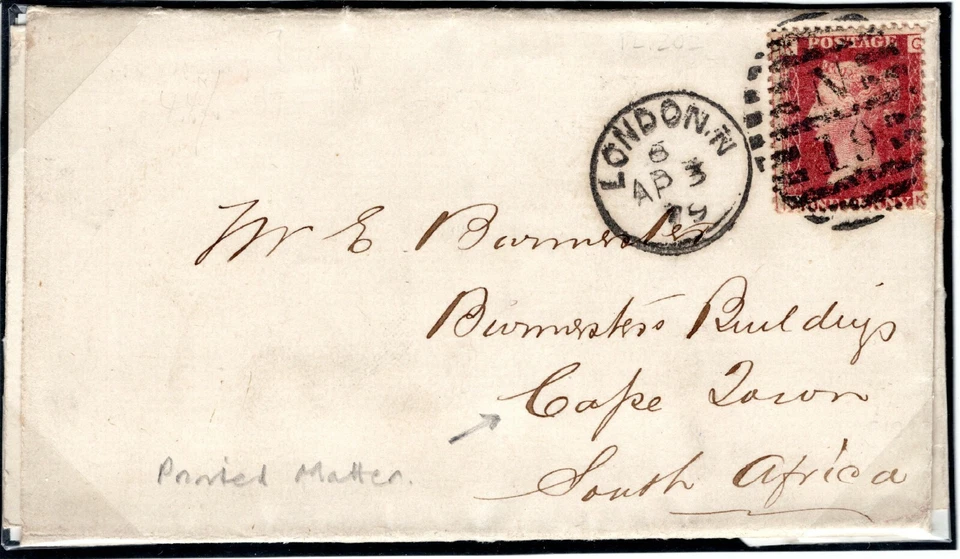 POSTAGE G
N
19
LONDON.N
6
AP 3
79
Mr E Burmester
Burmester's Buildings
Cape Town
South Africa
Printed Matter.